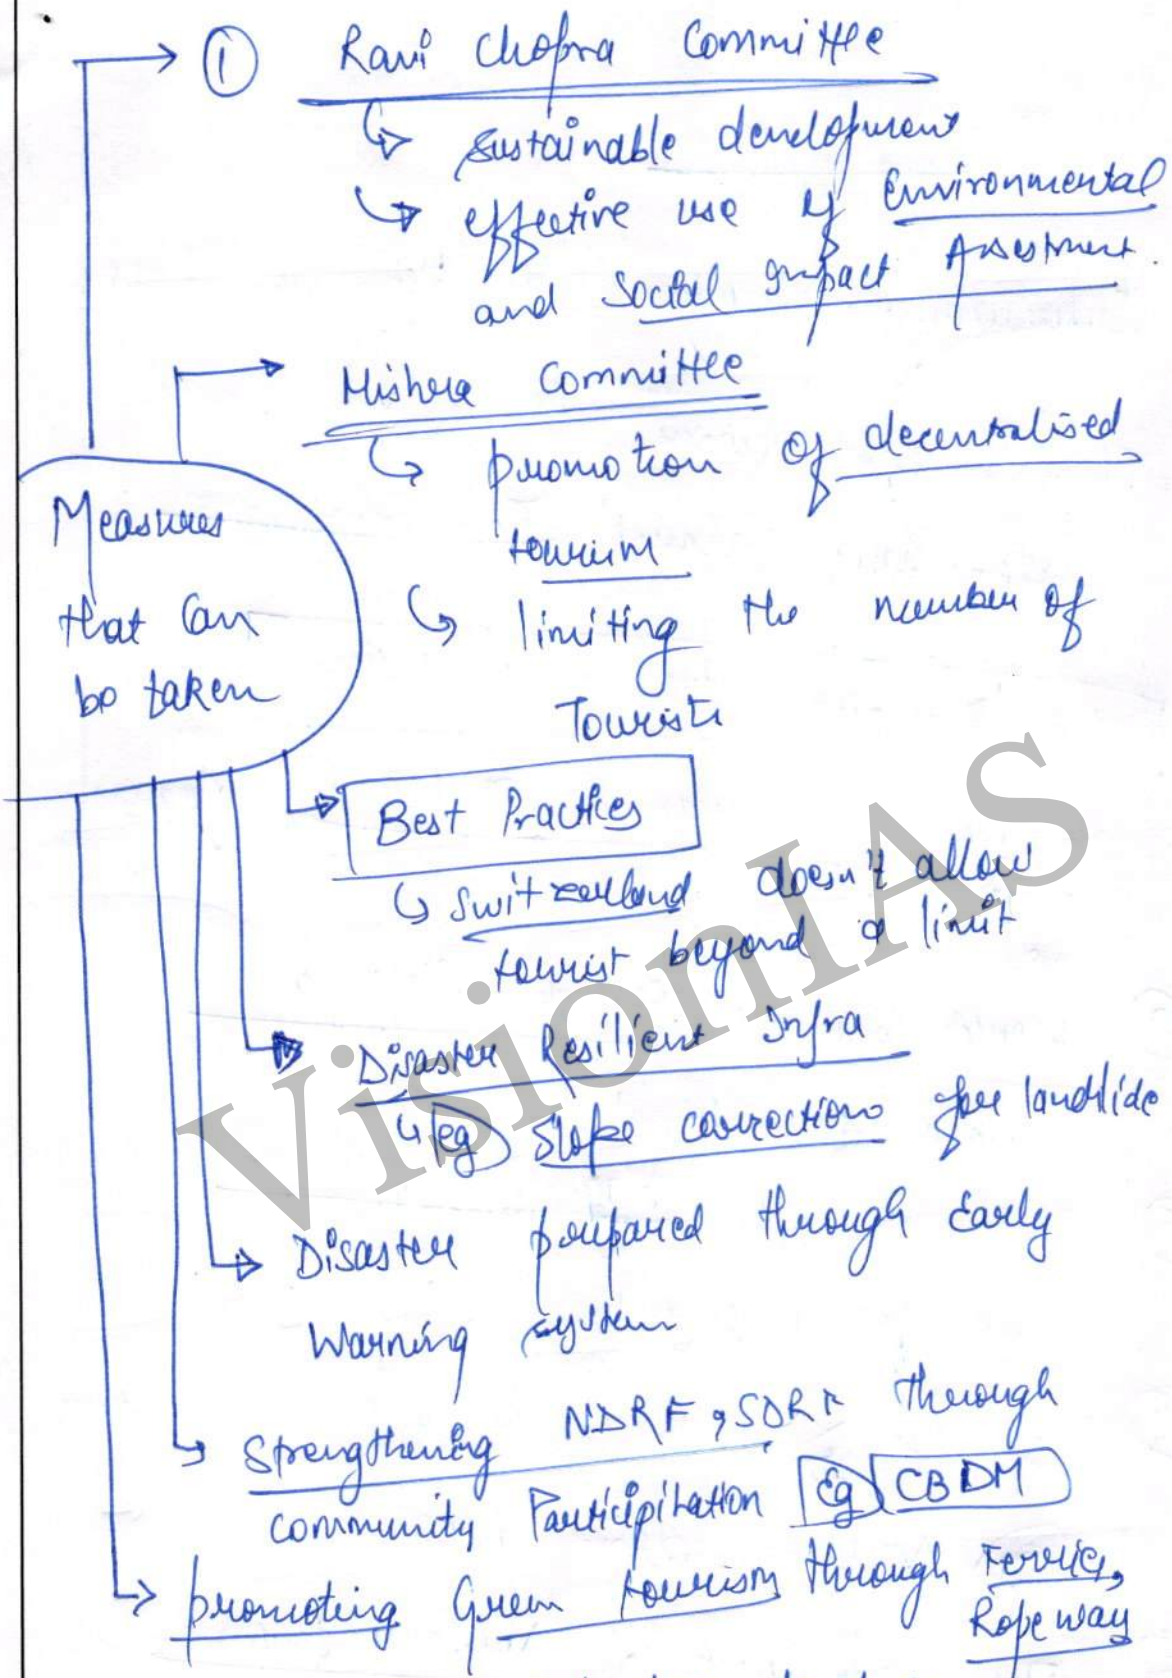 ① Ravi Chopra Committee
sustainable development
effective use of Environmental
and Social Impact Assessment.
Mishra Committee
promotion of decentralised
tourism
limiting the number of
Tourists
Measures
that can
be taken
Best Practices
Switzerland doesn't allow
tourist beyond a limit
Disaster Resilient Infra
eg Slope correction for landslide
Disaster prepared through Early
Warning system
Strengthening NDRF, SDRF through
community Participitation Eg CBDM
promoting Green tourism through Ferries,
Ropeway
VisionIAS